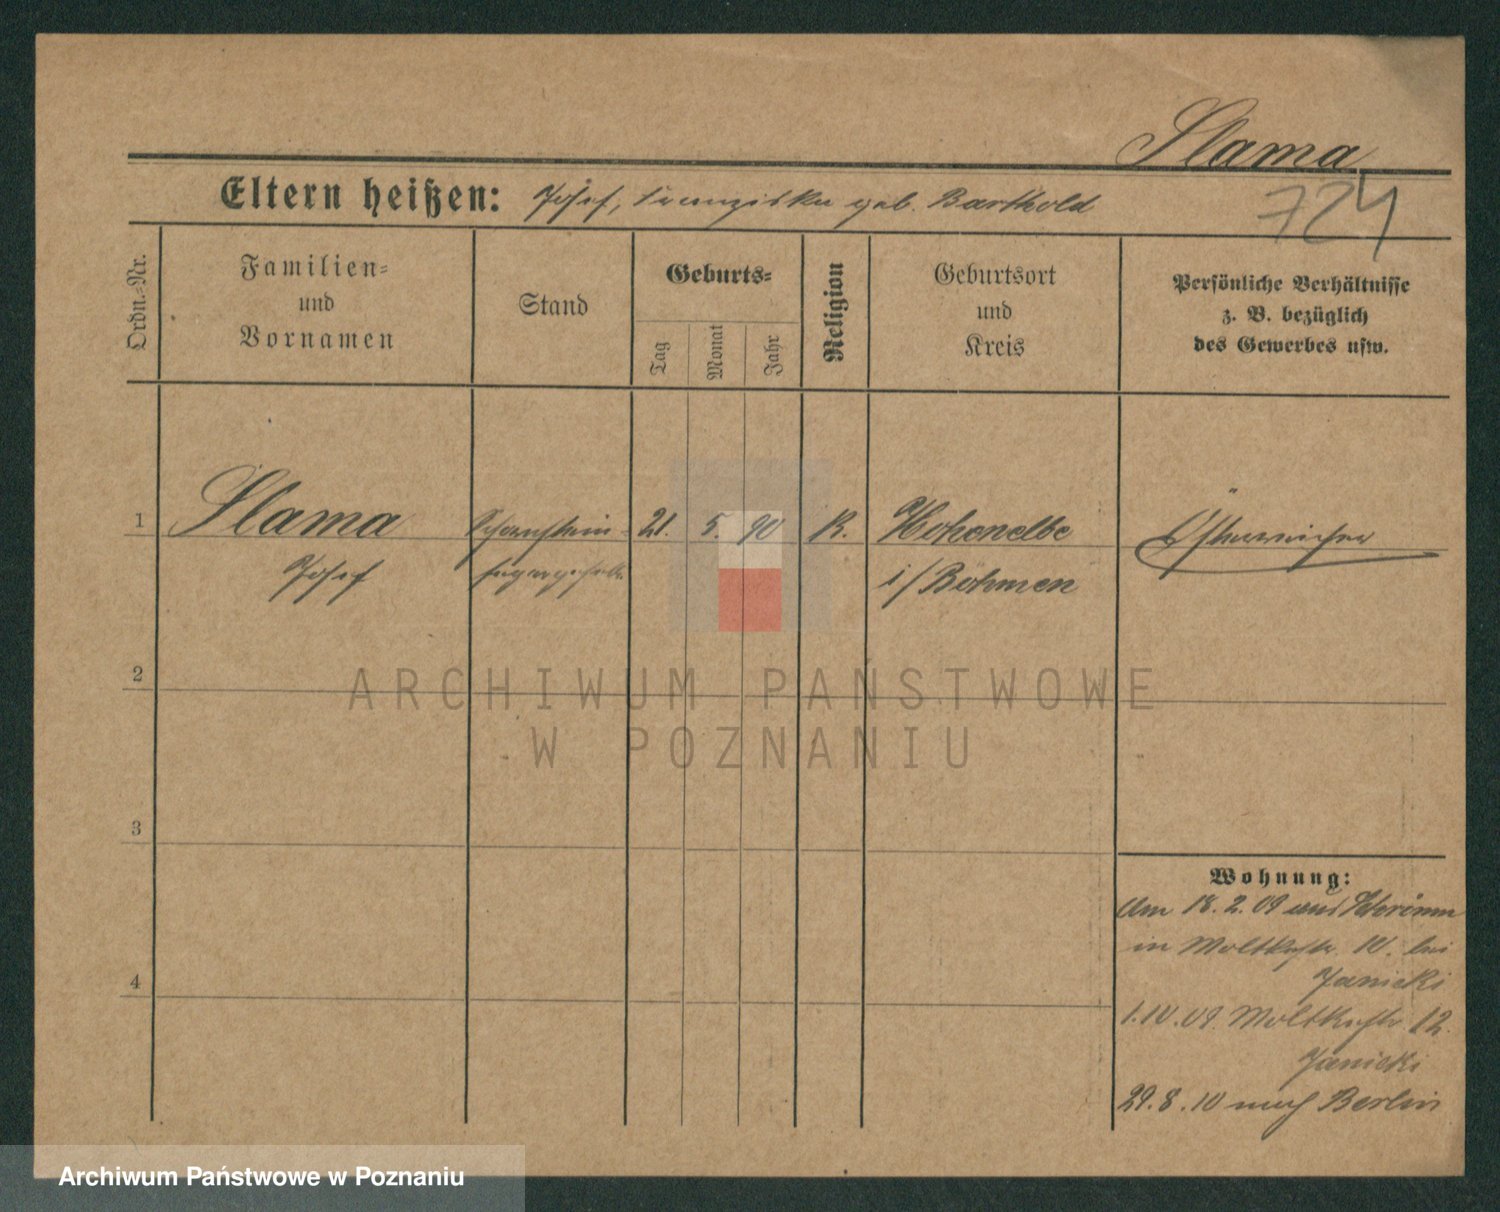 Slama
724
Eltern heißen: Josef, Franziska geb. Barthold
Ordn.-Nr.
Familien-
und
Vornamen
Stand
Geburts-
Tag
Monat
Jahr
Religion
Geburtsort
und
Kreis
Persönliche Verhältnisse
z. B. bezüglich
des Gewerbes usw.
1 Slama 21. 5. 90 K. Hohenelbe Österreicher
Josef i/Böhmen
2
ARCHIWUM PAŃSTWOWE
W POZNANIU
3
Wohnung:
Am 18.2.09 aus
in Moltkestr. 10. bei
4
Janicki
1.10.09 Moltkestr. 12.
Janicki
29.8.10 nach Berlin
Archiwum Państwowe w Poznaniu